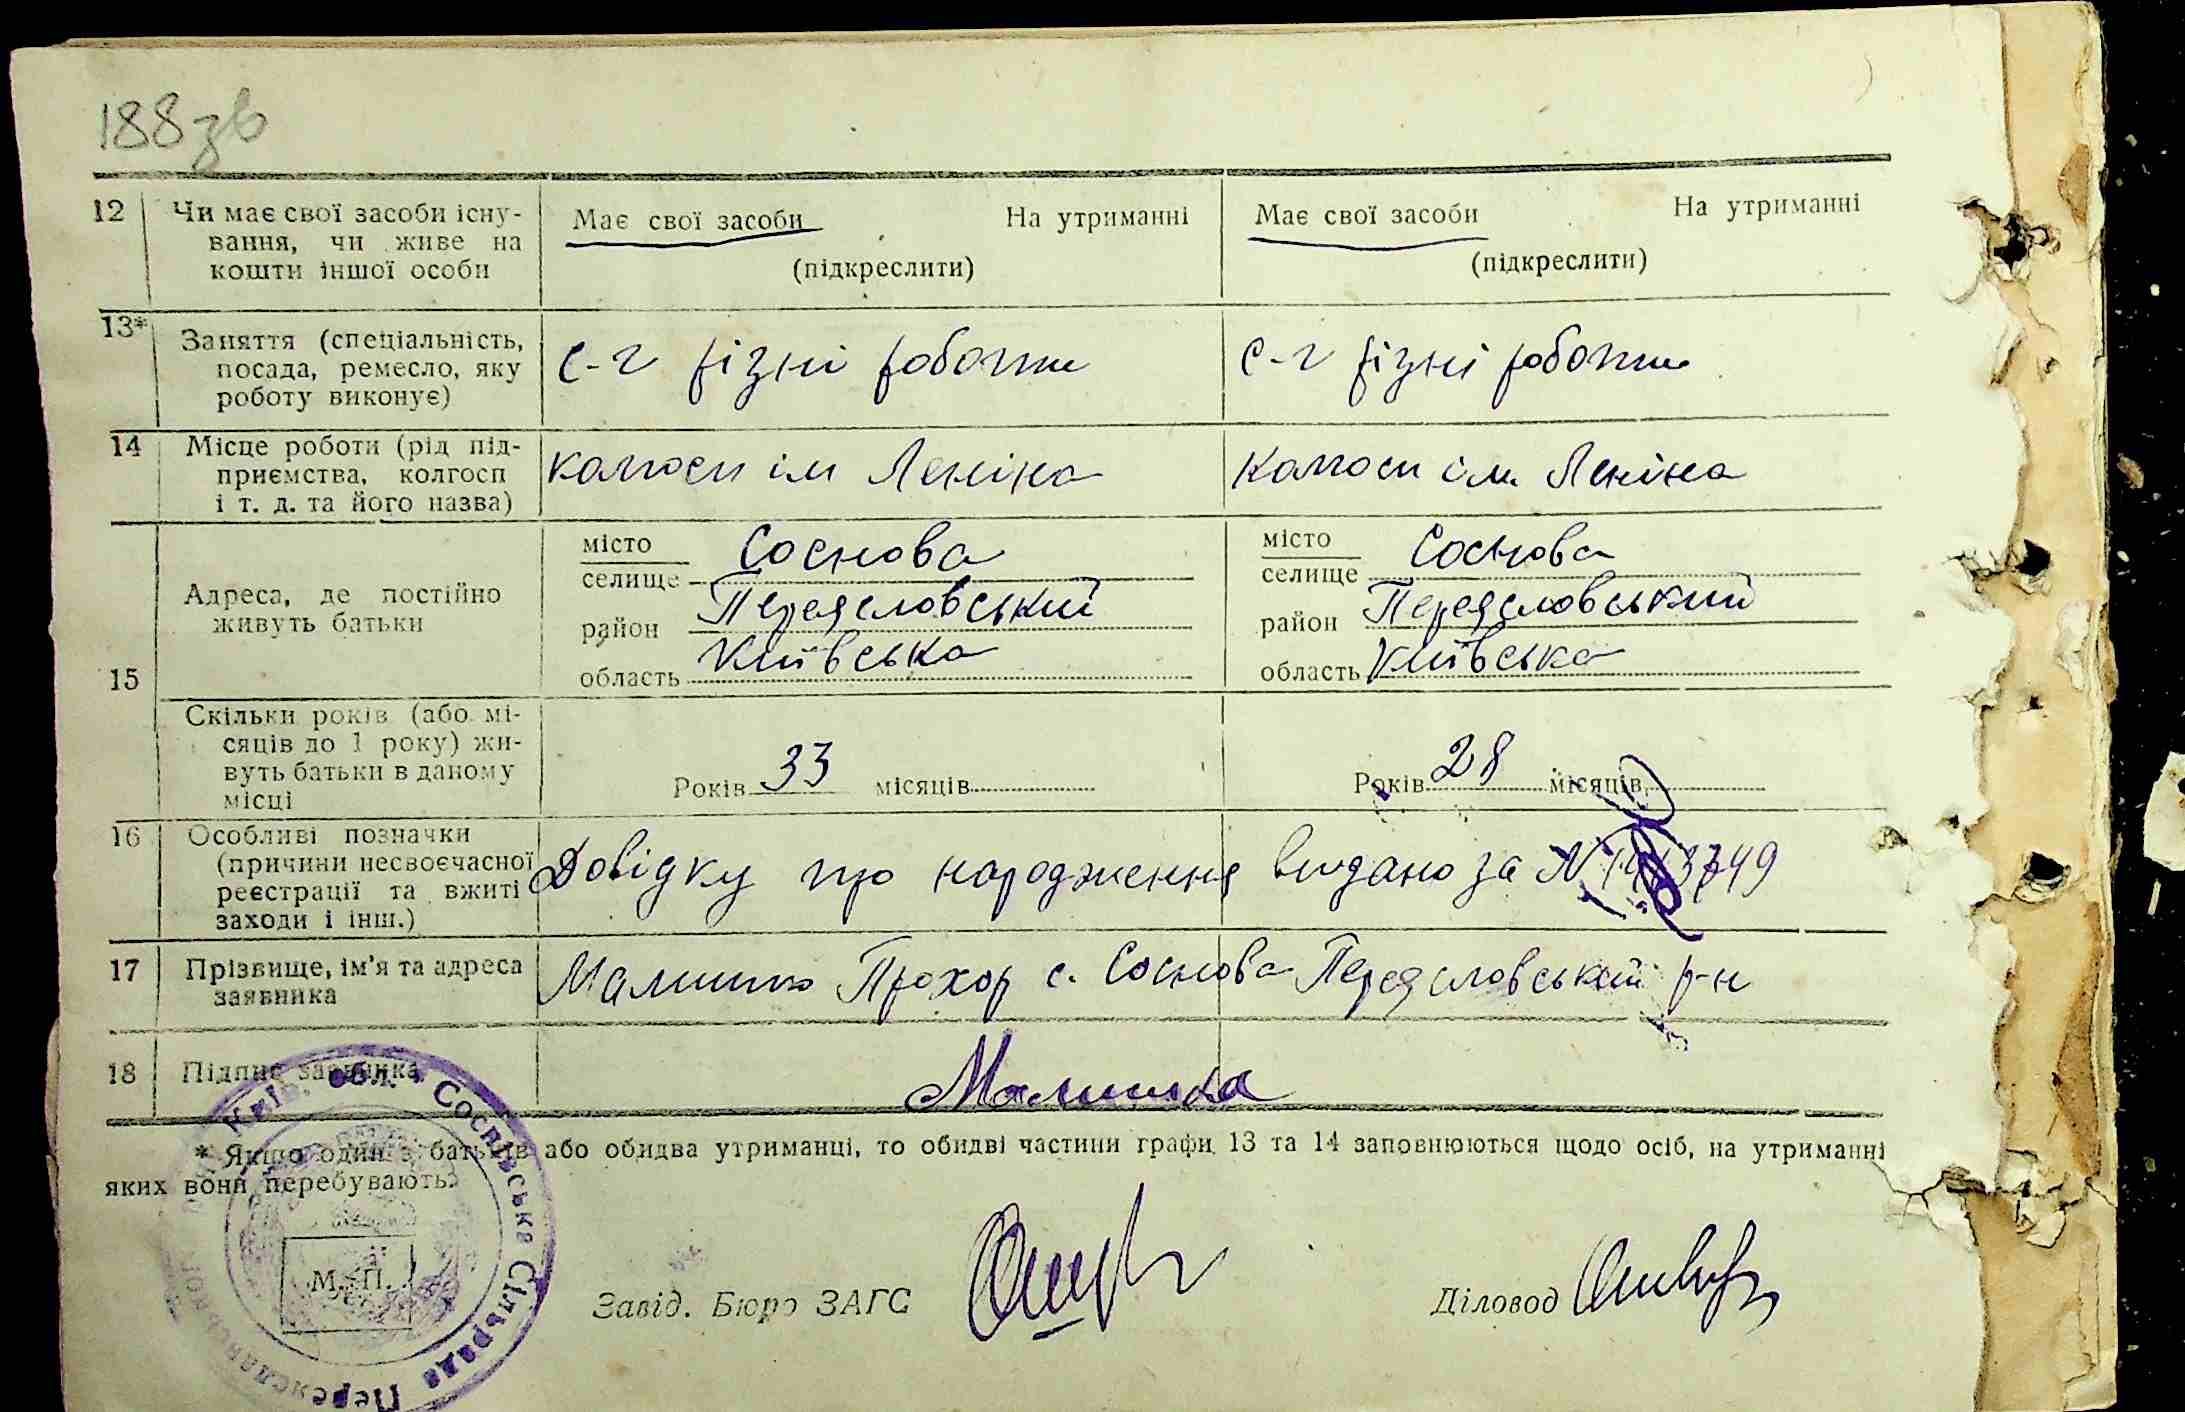 188зв
12 Чи має свої засоби існу- Має свої засоби На утриманні Має свої засоби На утриманні
вання, чи живе на
кошти іншої особи (підкреслити) (підкреслити)
13* Заняття (спеціальність,
посада, ремесло, яку с-г різні роботи с-г різні роботи
роботу виконує)
14 Місце роботи (рід під-
приємства, колгосп колгосп ім Леніна колгосп ім. Леніна
і т. д. та його назва)
місто Соснова місто Соснова
селище селище
Адреса, де постійно район Переясловський район Переясловський
живуть батьки область Київська область Київська
15
Скільки років (або мі-
сяців до 1 року) жи-
вуть батьки в даному Років 33 місяців Років 28 місяців
місці
16 Особливі позначки
(причини несвоєчасної Довідку про народження видано за №
реєстрації та вжиті
заходи і інш.)
17 Прізвище, ім'я та адреса Прохор с. Соснова Переясловський р-н
заявника
18 Підпис заявника
* Якщо один з батьків або обидва утриманці, то обидві частини графи 13 та 14 заповнюються щодо осіб, на утриманні
яких вони перебувають.
М. П.
Завід. Бюро ЗАГС Діловод
Київ. обл. Соснівська Сільрада Переяславського